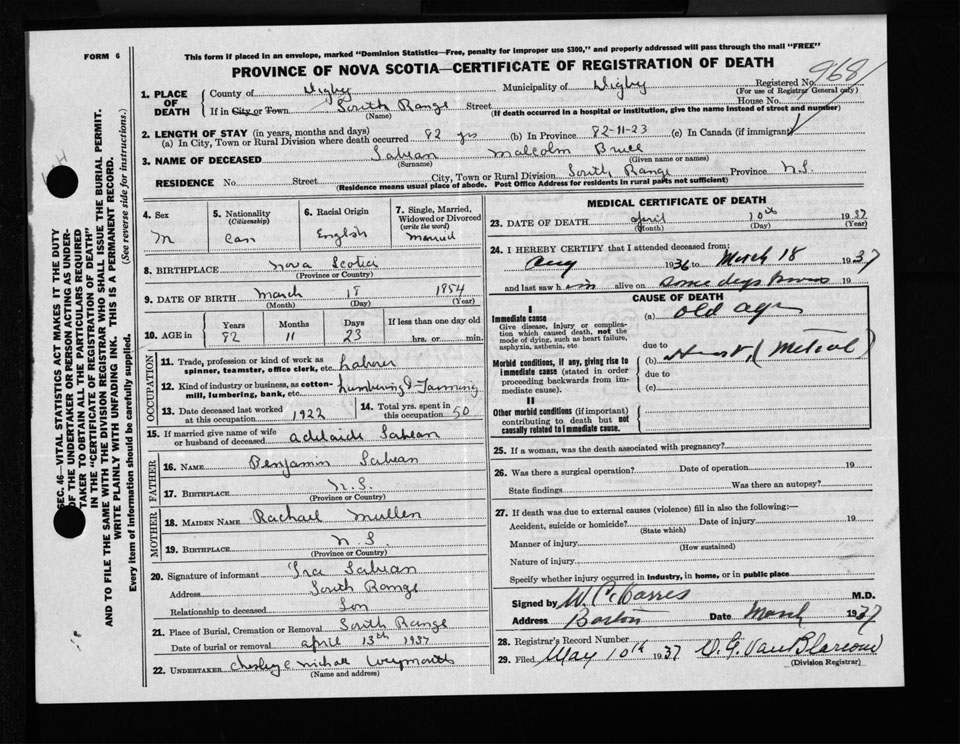 FORM 6
This form if placed in an envelope, marked "Dominion Statistics—Free, penalty for improper use $300," and properly addressed will pass through the mail "FREE"
PROVINCE OF NOVA SCOTIA—CERTIFICATE OF REGISTRATION OF DEATH
Registered No. 968
(For use of Registrar General only)
1. PLACE OF DEATH
County of Digby Municipality of Digby
If in City or Town South Range Street House No.
(Name) (If death occurred in a hospital or institution, give the name instead of street and number)
2. LENGTH OF STAY (in years, months and days)
(a) In City, Town or Rural Division where death occurred 82 yrs (b) In Province 82-11-23 (c) In Canada (if immigrant)
3. NAME OF DECEASED Sabean Malcolm Bruce
(Surname) (Given name or names)
RESIDENCE No. Street City, Town or Rural Division South Range Province N.S.
(Residence means usual place of abode. Post Office Address for residents in rural parts not sufficient)
4. Sex M
5. Nationality (Citizenship) Can
6. Racial Origin English
7. Single, Married, Widowed or Divorced (write the word) Married
8. BIRTHPLACE Nova Scotia
(Province or Country)
9. DATE OF BIRTH March 18 1854
(Month) (Day) (Year)
10. AGE in Years Months Days If less than one day old
82 11 23 hrs. or min.
OCCUPATION
11. Trade, profession or kind of work as spinner, teamster, office clerk, etc. Laborer
12. Kind of industry or business, as cotton-mill, lumbering, bank, etc. Lumbering & Farming
13. Date deceased last worked at this occupation 1922
14. Total yrs. spent in this occupation 50
15. If married give name of wife or husband of deceased Adelaide Sabean
FATHER
16. NAME Benjamin Sabean
17. BIRTHPLACE N.S.
MOTHER
18. MAIDEN NAME Rachael Mullen
19. BIRTHPLACE N.S.
(Province or Country)
20. Signature of informant Ira Sabean
Address South Range
Relationship to deceased Son
21. Place of Burial, Cremation or Removal South Range
Date of burial or removal April 13th 1937
22. UNDERTAKER Weymouth
(Name and address)
MEDICAL CERTIFICATE OF DEATH
23. DATE OF DEATH April 10th 1937
(Month) (Day) (Year)
24. I HEREBY CERTIFY that I attended deceased from:
Aug 1936 to March 18 1937
and last saw him alive on some days before 19
CAUSE OF DEATH
I
Immediate cause
Give disease, injury or complication which caused death, not the mode of dying, such as heart failure, asphyxia, asthenia, etc.
(a) old age
due to
Morbid conditions, if any, giving rise to immediate cause (stated in order proceeding backwards from immediate cause).
(b) Heart, (Mitral)
due to
(c)
II
Other morbid conditions (if important) contributing to death but not causally related to immediate cause.
25. If a woman, was the death associated with pregnancy?
26. Was there a surgical operation? Date of operation 19
State findings Was there an autopsy?
27. If death was due to external causes (violence) fill in also the following:—
Accident, suicide or homicide? Date of injury 19
(State which)
Manner of injury
(How sustained)
Nature of injury
Specify whether injury occurred in industry, in home, or in public place
Signed by M.D.
Address Barton Date March 1937
28. Registrar's Record Number
29. Filed May 10th 1937 O. G. VanBlarcom
(Division Registrar)
SEC. 46—VITAL STATISTICS ACT MAKES IT THE DUTY
OF THE UNDERTAKER OR PERSON ACTING AS UNDER-
TAKER TO OBTAIN ALL THE PARTICULARS REQUIRED
IN THE "CERTIFICATE OF REGISTRATION OF DEATH"
AND TO FILE THE SAME WITH THE DIVISION REGISTRAR WHO SHALL ISSUE THE BURIAL PERMIT.
WRITE PLAINLY WITH UNFADING INK. THIS IS A PERMANENT RECORD.
Every item of information should be carefully supplied. (See reverse side for instructions.)